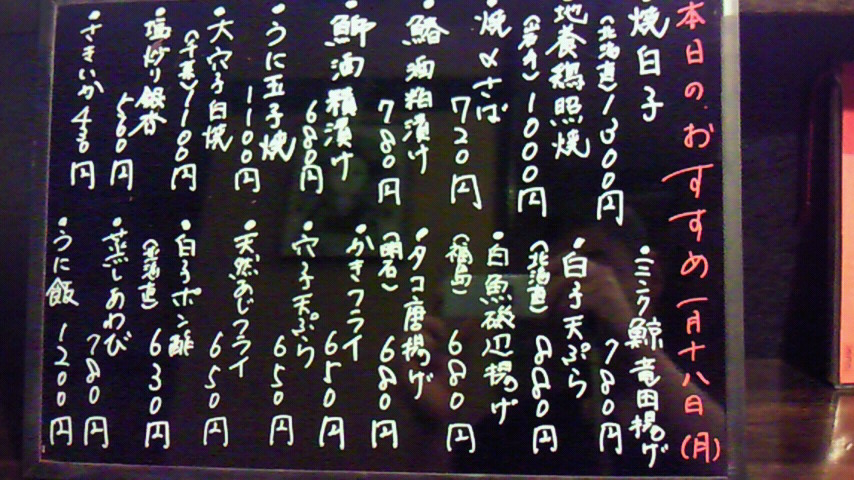 本日のおすすめ 一月十八日(月)
・焼白子
(北海道)1300円
・地養鶏照焼
1000円
・焼〆さば
720円
・鰆酒粕漬け
780円
・鰤酒粕漬け
680円
・うに玉子焼
1100円
・大穴子白焼
(千葉)1100円
・塩いり銀杏
500円
・さきいか430円
・ミンク鯨竜田揚げ
780円
・白子天ぷら
(北海道)880円
・白魚磯辺揚げ
(福島)680円
・タコ唐揚げ
(明石)680円
・かきフライ
650円
・穴子天ぷら
650円
・天然あじフライ
650円
・白子ポン酢
(北海道)630円
・蒸しあわび
780円
・うに飯 1200円